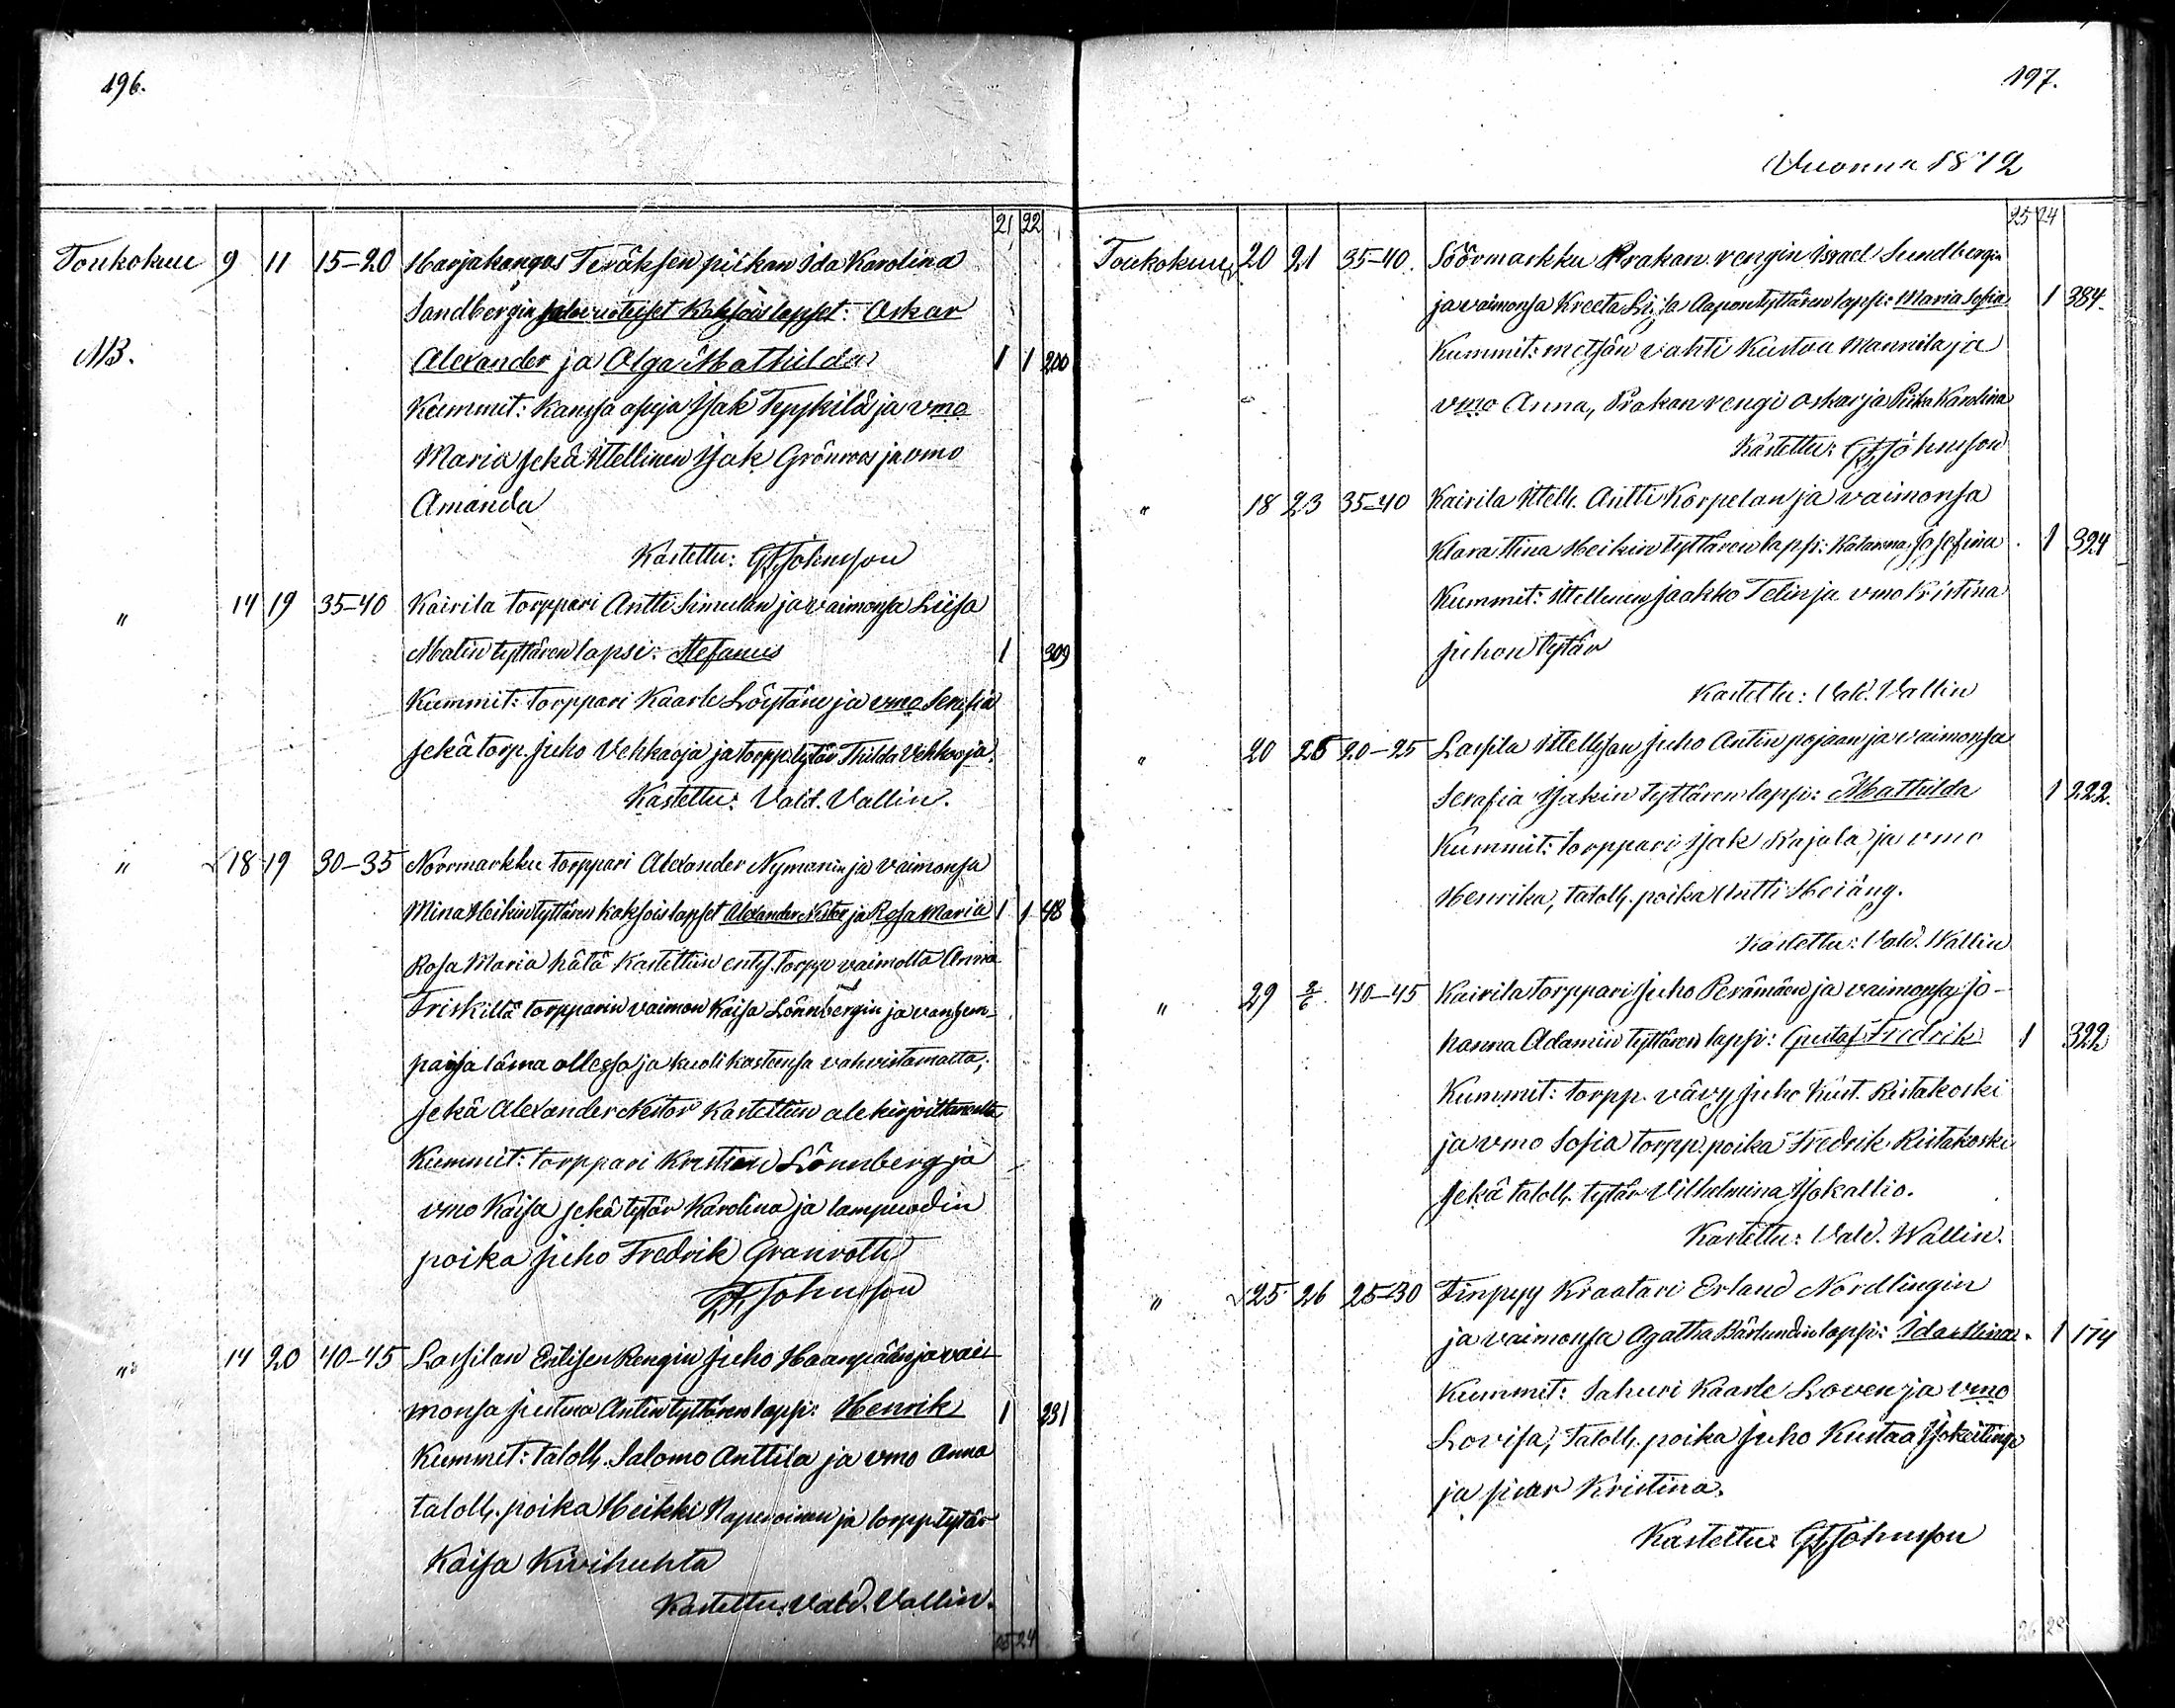 196.
21 22
Toukokuu 9 11 15-20 Harjakangas Teräksen piikan Ida Karolina
Sandbergin kaksois lapset: Oskar
NB. Alexander ja Olga Mathilda 1 1 200
Kummit: Kanssa asuja Isak Teppilä ja vmo
Maria sekä Itellinen Isak Grönroos ja vmo
Amanda
Kastettu: G F Johnsson
" 14 19 35-40 Kairila torppari Antti Simulan ja vaimonsa Liisa
Matin tyttären lapsi: Stefanus 1 309
Kummit: torppari Kaarle Löytäne ja vmo Serafia
sekä torp. Juho Vehkaoja ja torpp. tytär Thilda Vehkaoja.
Kastettu: Vald. Vallin.
" 18 19 30-35 Noormarkku torppari Alexander Nymanin ja vaimonsa
Mina Heikin tyttären kaksois lapset Alexander Nestor ja Rosa Maria 1 1 48
Rosa Maria hätä kastettiin entis. torpp vaimolta Anna
Friskiltä torpparin vaimon Kaisa Lönnbergin ja vanhem-
paissa läsna ollessa ja kuoli kasteensa vahvistamatta;
sekä Alexander Nestor kastettiin alekirjoittaneelta
Kummit: torppari Kristian Lönnberg ja
vmo Kaisa sekä tytär Karolina ja lampuodin
poika Juho Fredrik Granroth
G F Johnsson
" 14 20 40-45 Lassilan Entisen Rengin Juho Haanpään ja vai-
monsa Justina Antin tyttären lapsi: Henrik 1 231
Kummit: taloll. Salomo Anttila ja vmo Anna
taloll. poika Heikki ja torpp. tytär
Kaisa Kivihuhta
Kastettu: Vald. Vallin.
25 24
197.
Vuonna 1872
25 24
Toukokuu 20 21 35-40. Söörmarkku Prakan rengin Israel Sundbergin
ja vaimonsa Kreeta Liisa Aapon tyttären lapsi: Maria Sofia 1 384.
Kummit: metsän vahti Kustaa Mannila ja
vmo Anna, Prakan rengi Oskar ja Piika Karolina
Kastettu: G F Johnsson
" 18 23 35-40 Kairila Itell. Antti Korpelan ja vaimonsa
Klara Stina Heikin tyttären lapsi: Katarina Josefina 1 324
Kummit: Itellinen Jaakko Telin ja vmo Kristina
Juhon tytär
Kastettu: Vald. Vallin
" 20 25 20-25 Lassila Itellisen Juho Antin pojan ja vaimonsa
Serafia Isakin tyttären lapsi: Mathilda 1 222.
Kummit: torppari Isak Rajala ja vmo
Henrika, taloll. poika Antti
Kastettu: Vald. Wallin
" 29 2/6 40-45 Kairila torppari Juho Perämäen ja vaimonsa Jo-
hanna Adamin tyttären lapsi: Gustaf Fredrik 1 322
Kummit: torpp. vävy Juho Kust. Ristakoski
ja vmo Sofia torpp. poika Fredrik Ristakoski
sekä taloll. tytär Vilhelmina Isokallio.
Kastettu: Vald. Wallin.
" 25 26 25-30 Finpyy Kraatari Erland Nordlingin
ja vaimonsa Agatha Bärlundin lapsi: Ida Mina 1 174
Kummit: Sahuri Kaarle Loven ja vmo
Lovisa, Taloll. poika Juho Kustaa
ja sisar Kristina.
Kastettu: G F Johnsson
26 28